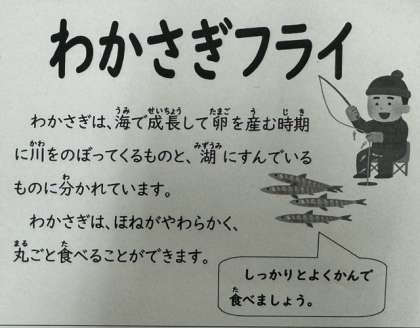 わかさぎフライ
わかさぎは、海で成長して卵を産む時期
に川をのぼってくるものと、湖にすんでいる
ものに分かれています。
わかさぎは、ほねがやわらかく、
丸ごと食べることができます。
しっかりとよくかんで
食べましょう。